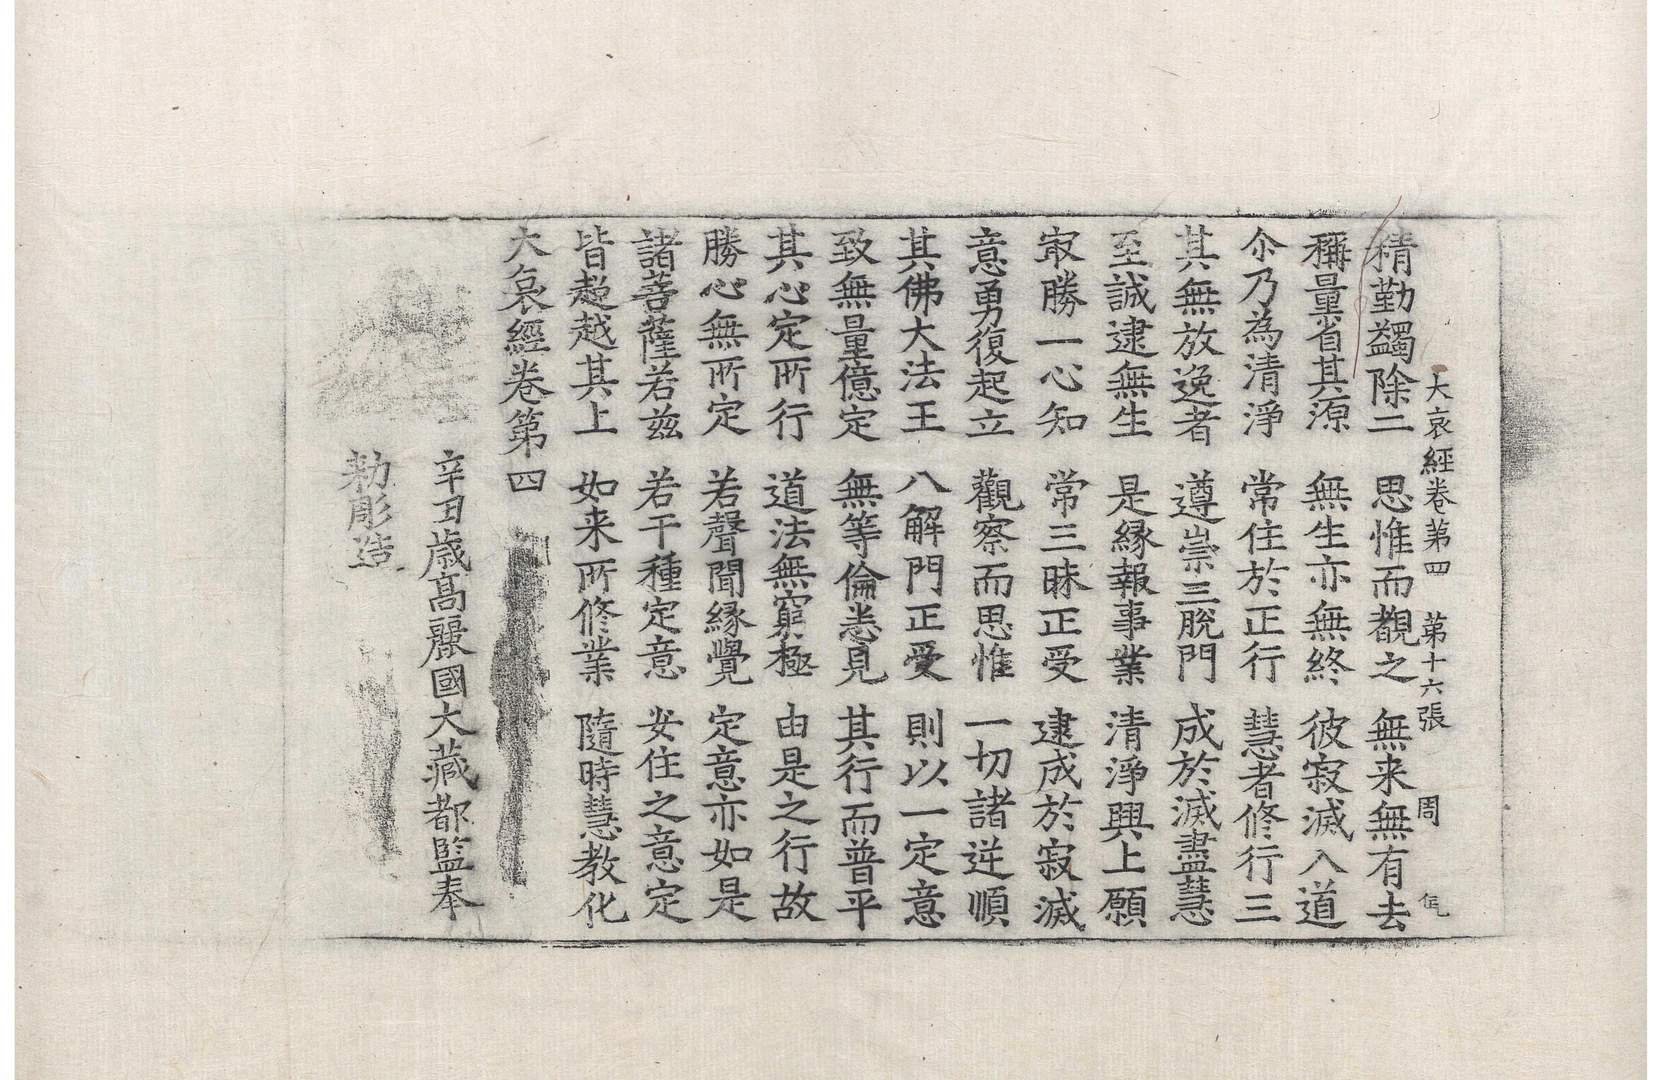 大哀經卷第四 第十六張 周
精勤蠲除二 思惟而觀之 無来無有去
稱量省其源 無生亦無終 彼寂滅入道
尒乃為清淨 常住於正行 慧者修行三
其無放逸者 遵崇三脫門 成於滅盡慧
至誠逮無生 是縁報事業 清淨興上願
冣勝一心知 常三昧正受 逮成於寂滅
意勇復起立 觀察而思惟 一切諸逆順
其佛大法王 八解門正受 則以一定意
致無量億定 無等倫悉見 其行而普平
其心定所行 道法無窮極 由是之行故
勝心無所定 若聲聞縁覺 定意亦如是
諸菩薩若兹 若干種定意 安住之意定
皆超越其上 如来所修業 隨時慧教化
大哀經卷第四
辛丑歳髙麗國大藏都監奉
勑彫造